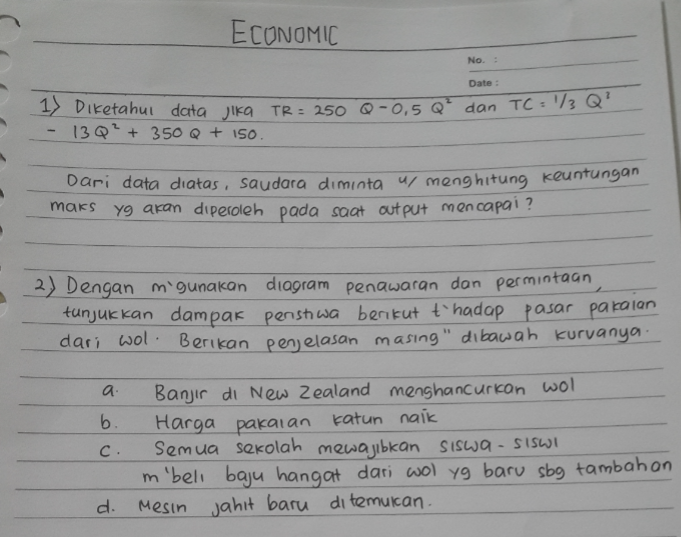 ECONOMIC
No. :
Date :
1) Diketahui data jika TR = 250 Q - 0,5 Q² dan TC = 1/3 Q³
- 13Q² + 350 Q + 150.
Dari data diatas, saudara diminta u/ menghitung keuntungan
maks yg akan diperoleh pada saat output mencapai?
2) Dengan m'gunakan diagram penawaran dan permintaan,
tunjukkan dampak peristiwa berikut t'hadap pasar pakaian
dari wol. Berikan penjelasan masing" dibawah kurvanya.
a. Banjir di New Zealand menghancurkan wol
b. Harga pakaian katun naik
c. Semua sekolah mewajibkan siswa - siswi
m'beli baju hangat dari wol yg baru sbg tambahan
d. Mesin jahit baru ditemukan.